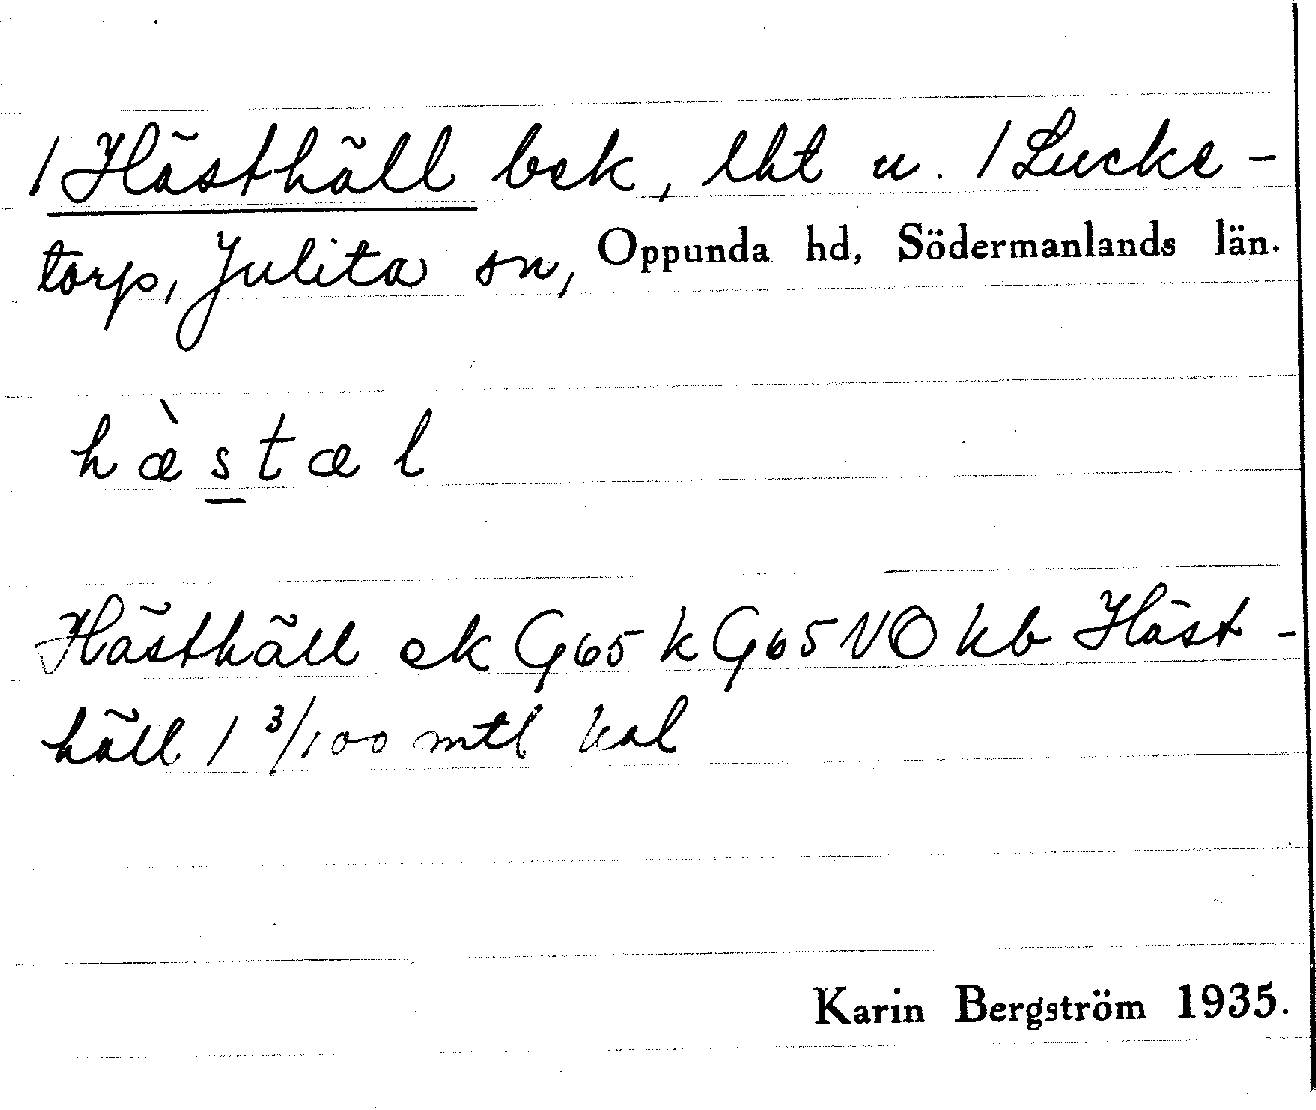 / Hästhäll bek, lht u. / Lucke-
torp, Julita sn, Oppunda hd, Södermanlands län.
hæ̀stæl
Hästhäll ek G65 k G65 NO kb Häst-
häll / 3/100 mtl kal
Karin Bergström 1935.